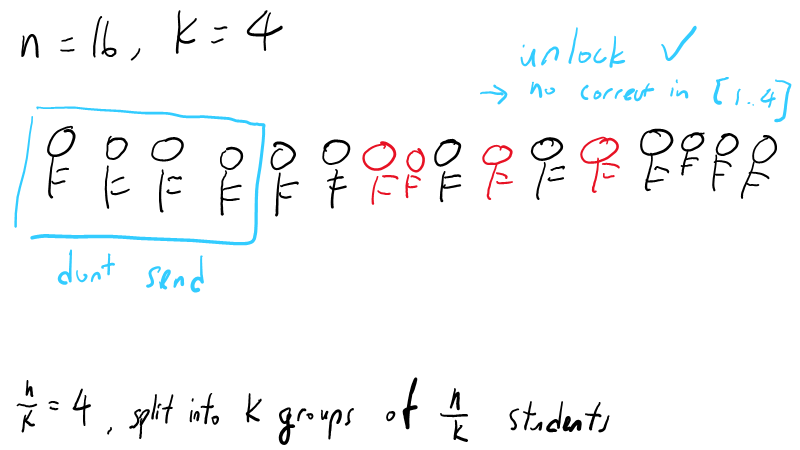 n = 16, k = 4
unlock ✓
→ no correct in [1..4]
dont send
n/k = 4, split into k groups of n/k students